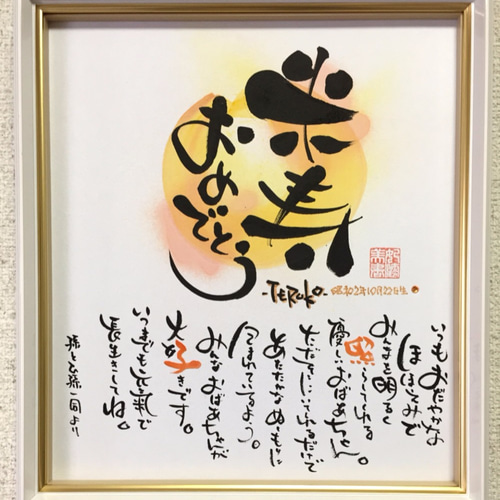 米寿
おめでとう
-TERUKO- 昭和2年10月22日生
いつもおだやかな
ほほえみで
みんなを明るく
照らしてくれる
優しいおばあちゃん。
ただそこにいてくれるだけで
あたたかなぬくもりに
包まれているよう。
みんなおばあちゃんが
大好きです。
いつまでも元気で
長生きしてね。
孫とひ孫一同より